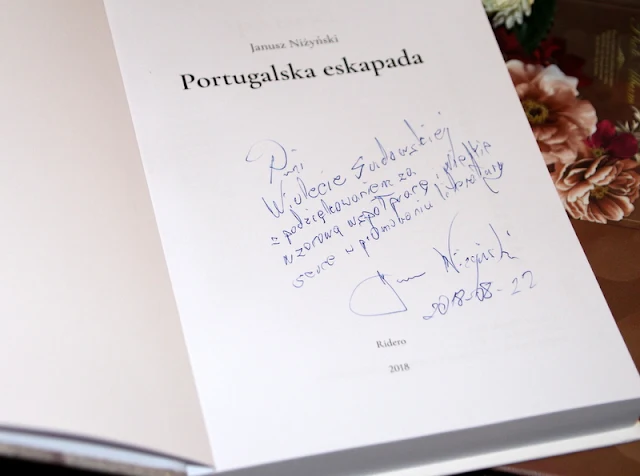 Janusz Niżyński
Portugalska eskapada
Pani
Wiolecie Sadowskiej
z podziękowaniem za
wzorową współpracę i wielkie
serce w promowaniu literatury
Janusz Niżyński
2018-08-22
Ridero
2018